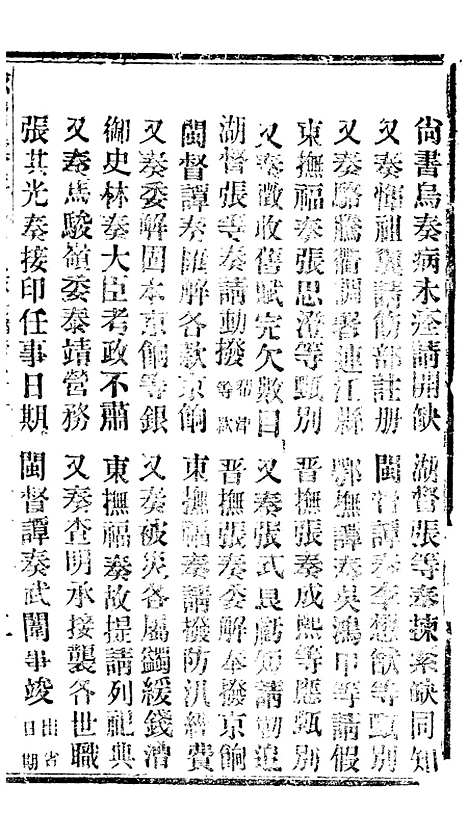 尙書烏奏病未痊請開缺　湖督張等奏揀案缺同知
又奏惲祖翼請飭部註册　閩督譚奏李懋猷等甄別
又奏駱騰衢調署連江縣　鄂撫譚奏吳鴻甲等請假
東撫福奏張思澄等甄別　晋撫張奏成熙等應甄別
又奏徵收舊賦完欠數目　又奏張式良虧短請勒追
湖督張等奏請動撥等欵　晋撫張奏委解奉撥京餉
閩督譚奏匯解各欵京餉　東撫福奏請撥防汛經費
又奏委解固本京餉等銀　又奏被災各屬蠲緩錢漕
御史林奏大臣考政不肅　東撫福奏故提請列祀典
又奏馬駿嶺委泰靖營務　又奏查明承接襲各世職
張其光奏接印任事日期　閩督譚奏武闈事竣出省日期